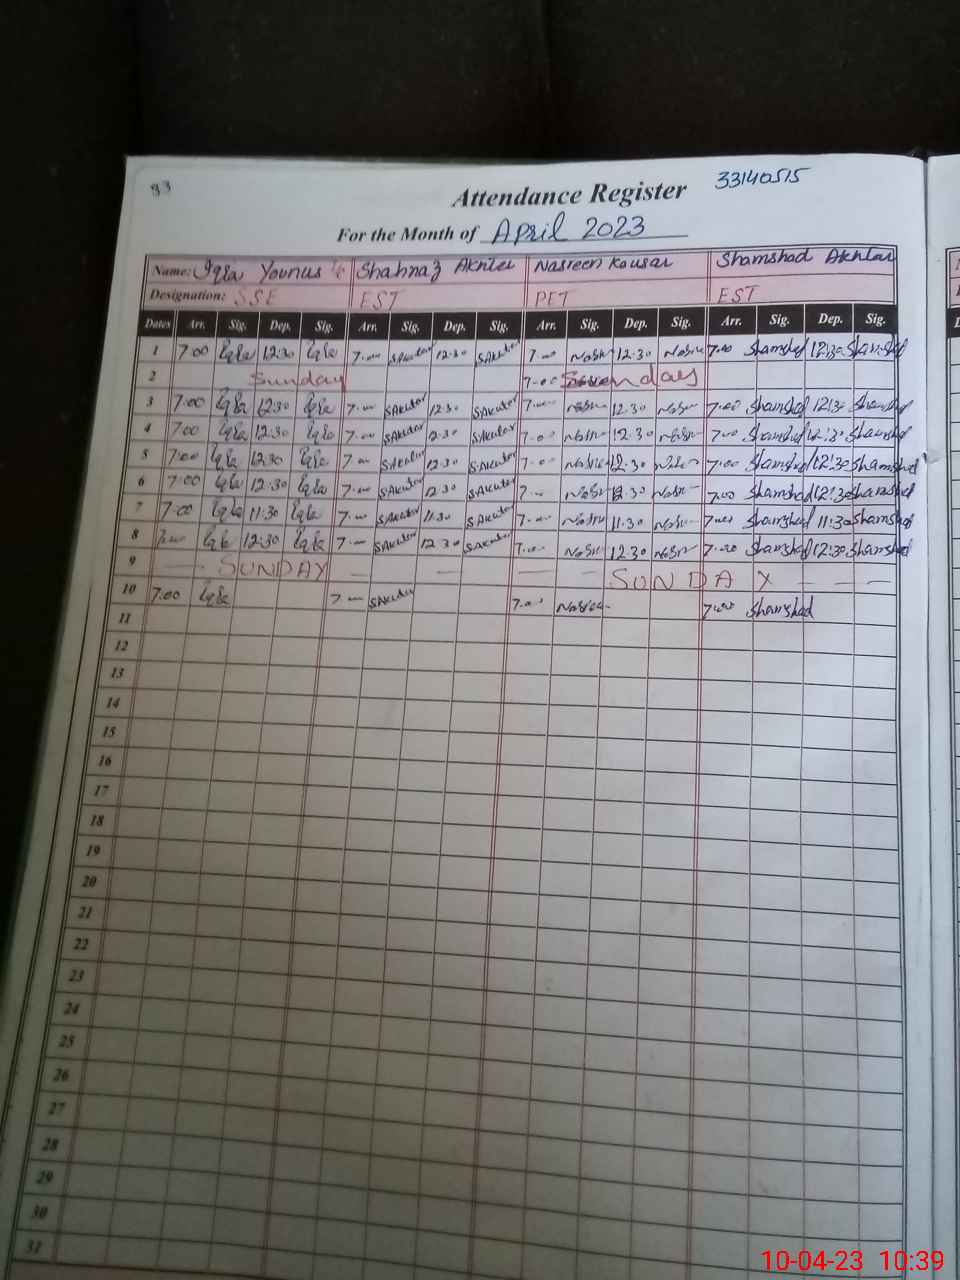 33140515
Attendance Register
For the Month of April 2023
Name: Iqra Younus Shahnaz Akhter Nasreen Kausar Shamshad Akhtar
Designation: SSE EST PET EST
Dates Arr. Sig. Dep. Sig. Arr. Sig. Dep. Sig. Arr. Sig. Dep. Sig. Arr. Sig. Dep. Sig.
1 7.00 Iqra 12.30 Iqra 7.00 SAkhter 12.30 SAkhter 7.00 12.30 7.00 Shamshad 12:30 Shamshad
2 Sunday 7.00 Sunday
3 7.00 Iqra 12.30 Iqra 7.00 SAkhter 12.30 SAkhter 7.00 12.30 7.00 Shamshad 12:30 Shamshad
4 7.00 Iqra 12.30 Iqra 7.00 SAkhter 12.30 SAkhter 7.00 12.30 7.00 Shamshad 12:30 Shamshad
5 7.00 Iqra 12.30 Iqra 7.00 SAkhter 12.30 SAkhter 7.00 12.30 7.00 Shamshad 12:30 Shamshad
6 7.00 Iqra 12.30 Iqra 7.00 SAkhter 12.30 SAkhter 12.30 7.00 Shamshad 12:30 Shamshad
7 7.00 Iqra 11.30 Iqra 7.00 SAkhter 11.30 SAkhter 7.00 11.30 7.00 Shamshad 11:30 Shamshad
8 7.00 Iqra 12.30 Iqra 7.00 SAkhter 12.30 SAkhter 7.00 12.30 7.00 Shamshad 12:30 Shamshad
9 SUNDAY SUNDAY
10 7.00 Iqra 7.00 SAkhter 7.00 7.00 Shamshad
11
12
13
14
15
16
17
18
19
20
21
22
23
24
25
26
27
28
29
30
31
10-04-23 10:39